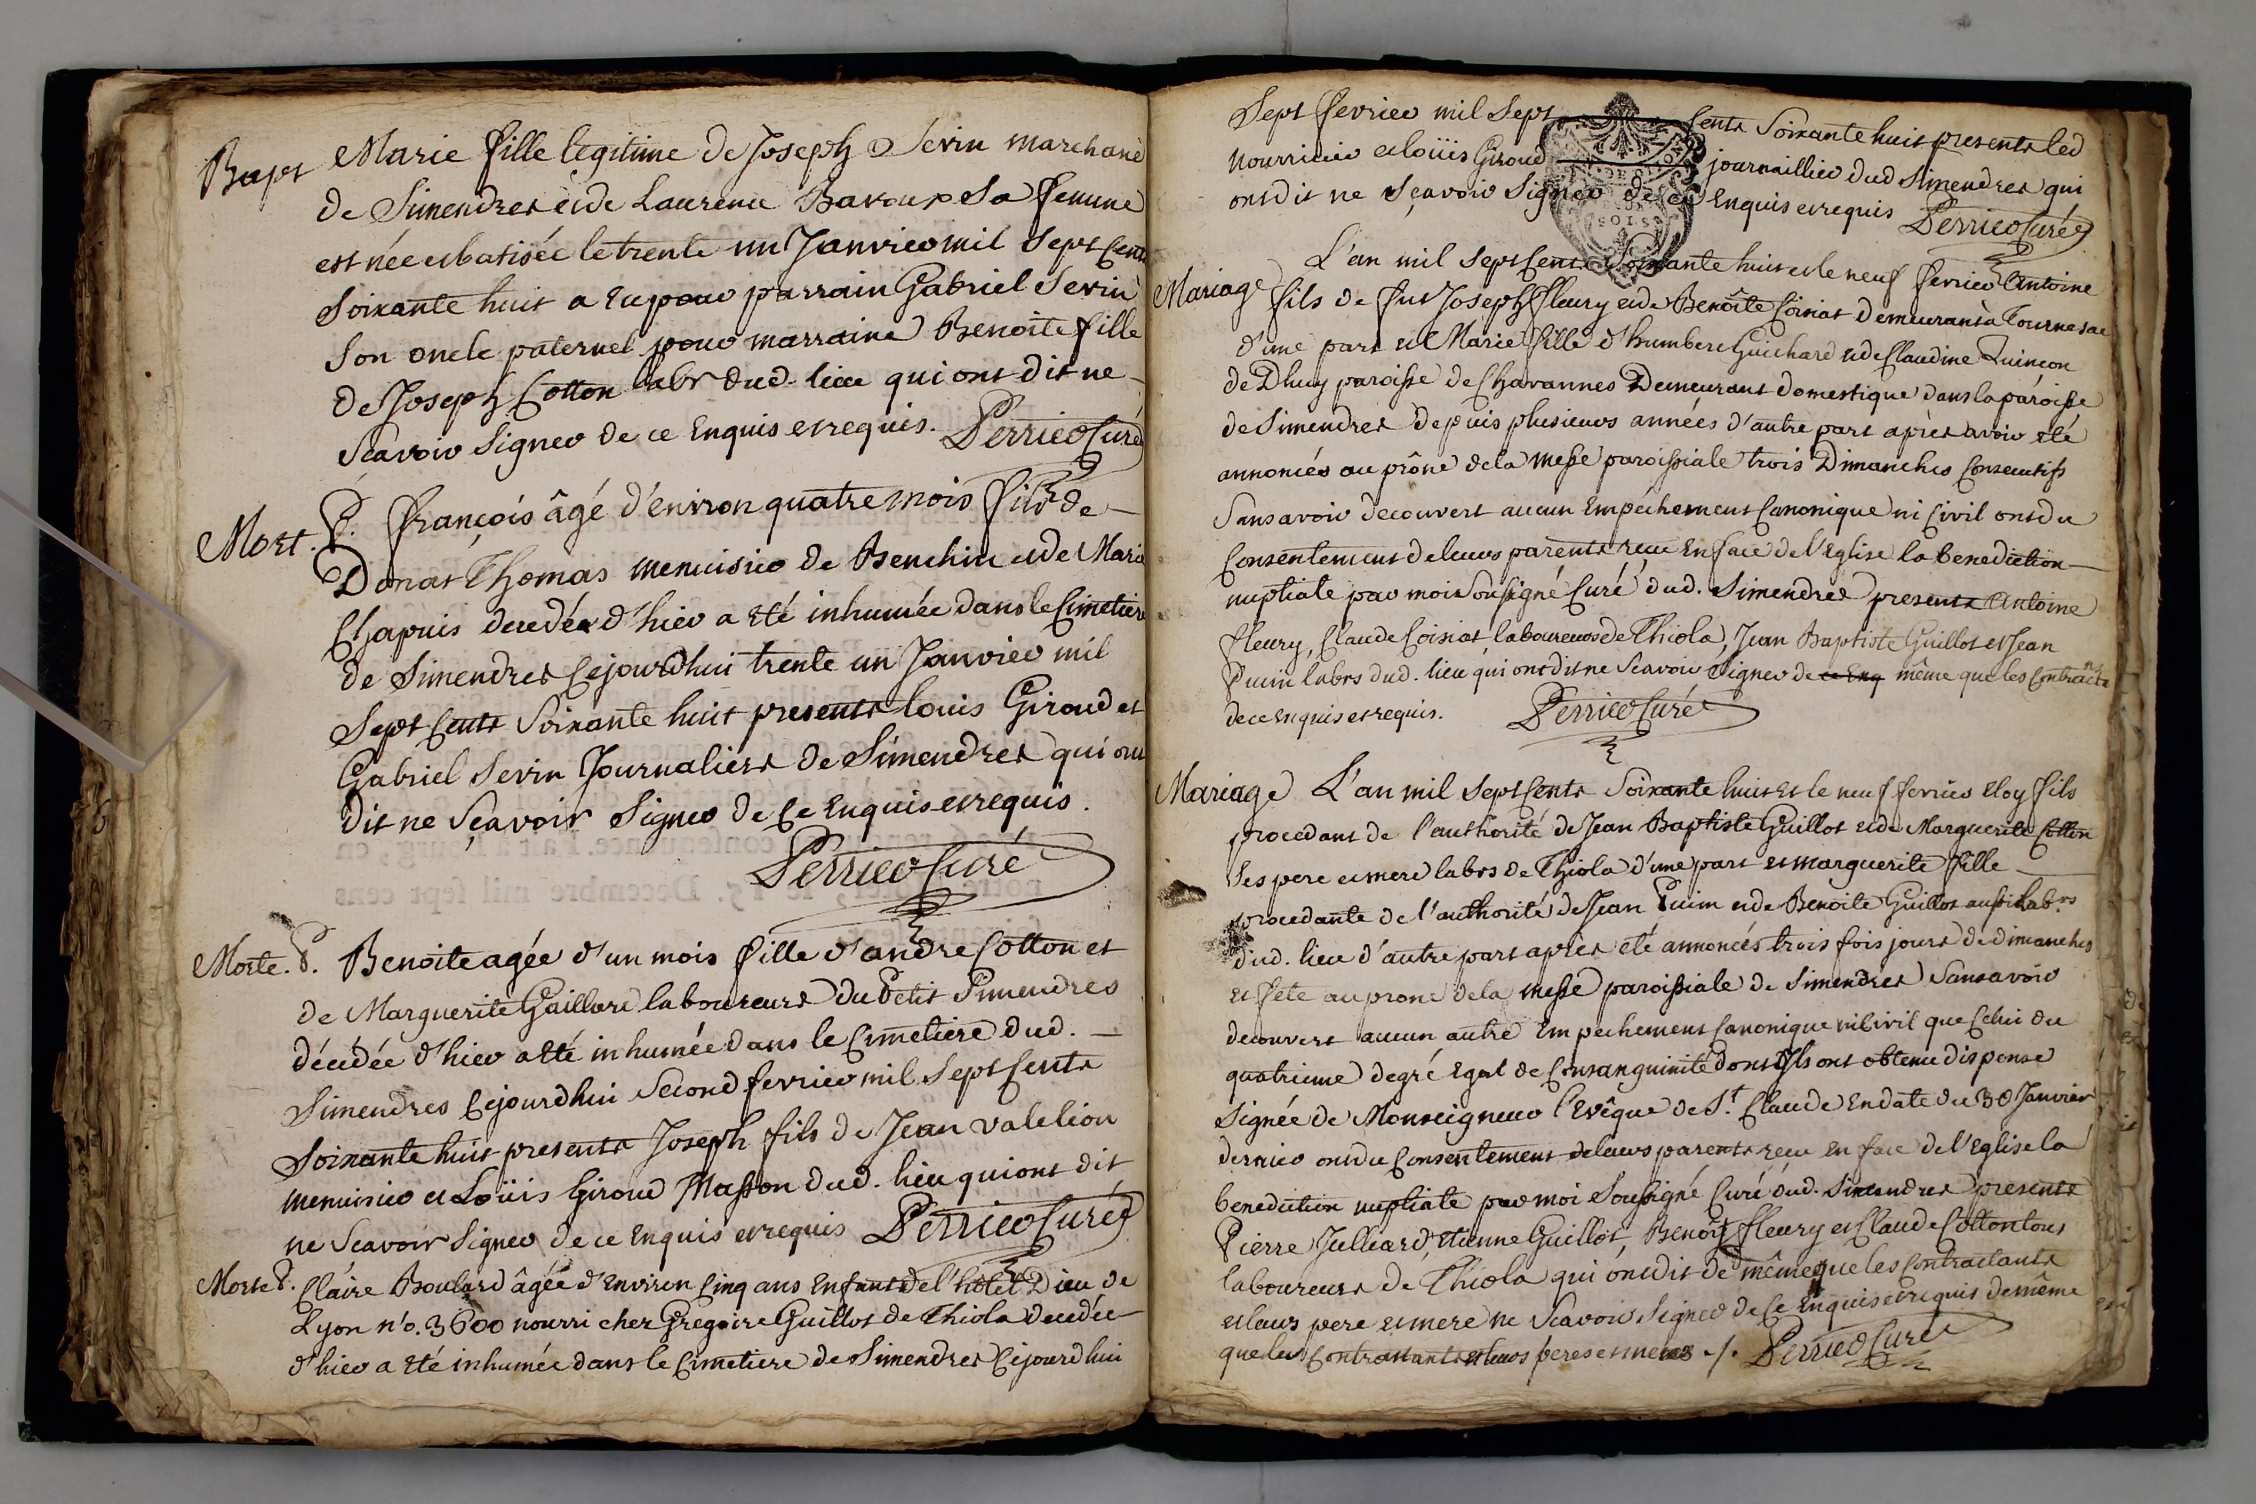 Bapt Marie fille legitime de Joseph Sevin marchand
de Simendres et de Laurence Baroux Sa femme
est née et batisée le trente un Janvier mil Sept Cent
Soixante huit a eu pour parrain Gabriel Sevin
Son oncle paternel pour marraine Benoite fille
de Joseph Cotton labr dud. lieu qui ont dit ne
Scavoir Signer de ce Enquis et requis. Perrier Curé
Mort. P. François âgé d'environ quatre mois fils de
Donat Thomas menuisier de Benchin et de Marie
Chapuis decedée d'hier a eté inhumée dans le Cimetiere
de Simendres Cejourdhui trente un Janvier mil
Sept Cents Soixante huit presents louis Giroud et
Gabriel Sevin Journaliers de Simendres qui ont
dit ne Sçavoir Signer de Ce Enquis et requis.
Perrier Curé
Morte. P. Benoite agée d'un mois fille d'andre Cotton et
de Marguerite Gaillard laboureurs du Petit Simendres
décédée d'hier a eté inhumée dans le Cimetiere dud.
Simendres Cejourdhui Second fevrier mil Sept Cents
Soixante huit presents Joseph fils de Jean valelion
menuisier et Loüis Giroud Masson dud. lieu qui ont dit
ne Scavoir Signer de ce Enquis et requis Perrier Curé
Morte P. Claire Boulard âgée d'Environ Cinq ans Enfants de l'hôtel Dieu de
Lyon n°o. 3600 nourri chez Gregoire Guillot de Thiola decedée
d'hier a eté inhumée dans le Cimetiere de Simendres Cejourdhui
Sept fevrier mil Sept Cents Soixante huit presents led
nourricier et loüis Giroud journaillier dud Simendres qui
ont dit ne Sçavoir Signer de ce Enquis et requis Perrier Curé
L'an mil Sept Cents Soixante huit et le neuf fevrier Antoine
Mariage fils de fut Joseph fleury et de Benoîte Coiniat Demeurant à Tournesac
d'une part et Marie fille d'humbert Guichard et de Claudine Quinçon
de Dhuy paroisse de Chavannes Demeurant domestique dans la paroisse
de Simendres depuis plusieurs années d'autre part après avoir eté
annoncés au prône de la Messe paroissiale trois Dimanches Consecutifs
Sans avoir decouvert aucun Empêchement Canonique ni Civil ont du
Consentement de leurs parents reçu En face de l'Eglise la benediction
nuptiale par moi Sousigné Curé dud. Simendres presents Antoine
fleury, Claude Coiniat laboureurs de Thiola, Jean Baptiste Guillot et Jean
Puin labrs dud. lieu qui ont dit ne Scavoir Signer de ce Enq même que les Contractants
de ce Enquis et requis. Perrier Curé
Mariage L'an mil Sept Cents Soixante huit et le neuf fevrier Eloy fils
procedant de l'authorité de Jean Baptiste Guillot et de Marguerite Cotton
Ses pere et mere labrs de Thiola d'une part et marguerite fille
procedante de l'authorité de Jean Puim et de Benoite Guillot aussi Labrs
dud. lieu d'autre part après eté annoncés trois fois jours de dimanches
et fete au prone de la Messe paroissiale de Simendres Sans avoir
decouvert aucun autre Empechement Canonique ni Civil que Celui du
quatrieme degré Egal de Consanguinité dont Ils ont obtenu dispense
Signée de Monseigneur l'Evêque de St. Claude En date du 30 Janvier
dernier ont du Consentement de leurs parents reçu En face de l'Eglise la
benediction nuptiale par moi Sousigné Curé dud. Simendres presents
Pierre Julliard, Etienne Guillot, Benoît fleury et Claude Cotton tous
laboureurs de Thiola qui ont dit de même que les Contractants
et leurs pere et mere ne Scavoir Signer de Ce Enquis et requis de même
que les Contractants et leurs peres et meres ./. Perrier Curé